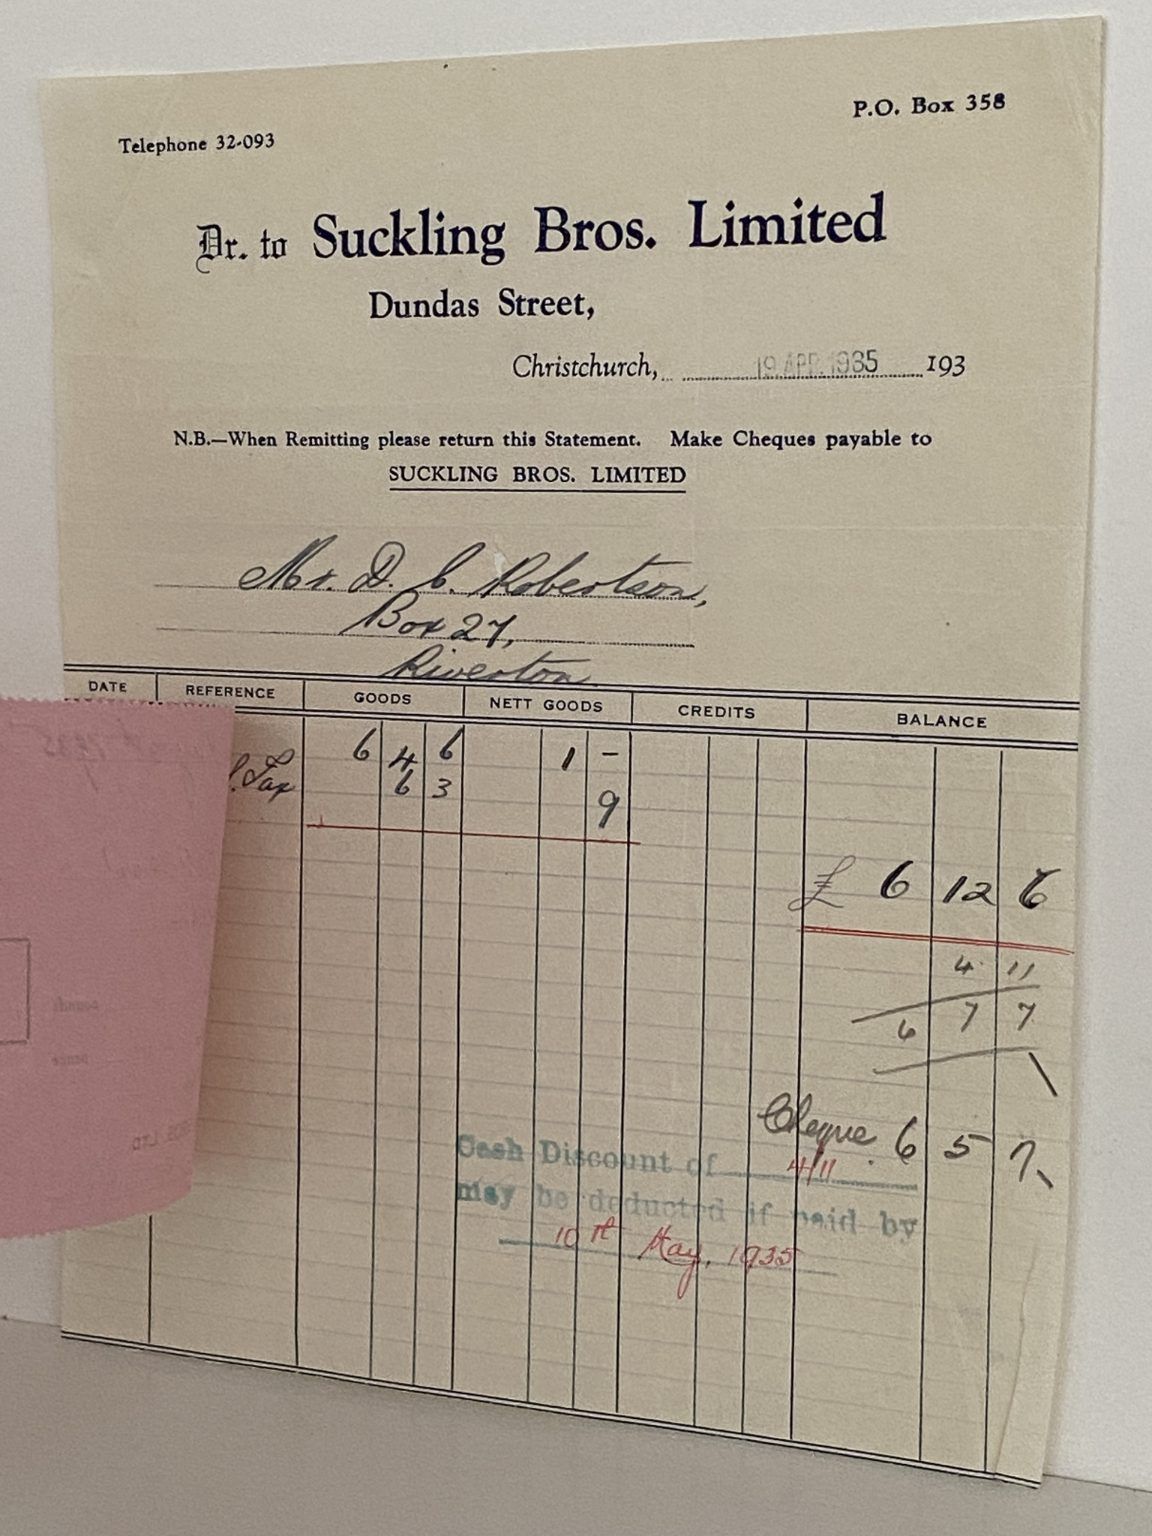 P.O. Box 358
Telephone 32-093
Dr. to Suckling Bros. Limited
Dundas Street,
Christchurch, 19 APR 1935 193
N.B.—When Remitting please return this Statement. Make Cheques payable to
SUCKLING BROS. LIMITED
Mr. D. C. Robertson,
Box 27,
Riverton
DATE REFERENCE GOODS NETT GOODS CREDITS BALANCE
6 4 6 1 -
Tax 6 3 9
£ 6 12 6
4 11
6 7 7
Cheque 6 5 7
Cash Discount of 4/11
may be deducted if paid by
10th May, 1935
pounds
pence